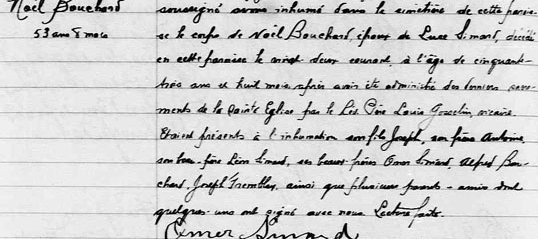 Noël Bouchard
53 ans 8 mois
soussigné avons inhumé dans le cimetière de cette parois-
se le corps de Noël Bouchard, époux de Luce Simard, décédé
en cette paroisse le vingt deux courant, à l'âge de cinquante-
trois ans et huit mois après avoir été administré des derniers sacre-
ments de la Sainte Eglise par le Père Louis Gosselin, vicaire.
Etaient présents à l'inhumation son fils Joseph, son frère Antoine,
son beau-frère Léon Simard, ses beaux frères Omer Simard, Alfred Bou-
chard, Joseph Tremblay, ainsi que plusieurs parents et amis dont
quelques-uns ont signé avec nous. Lecture faite.
Omer Simard